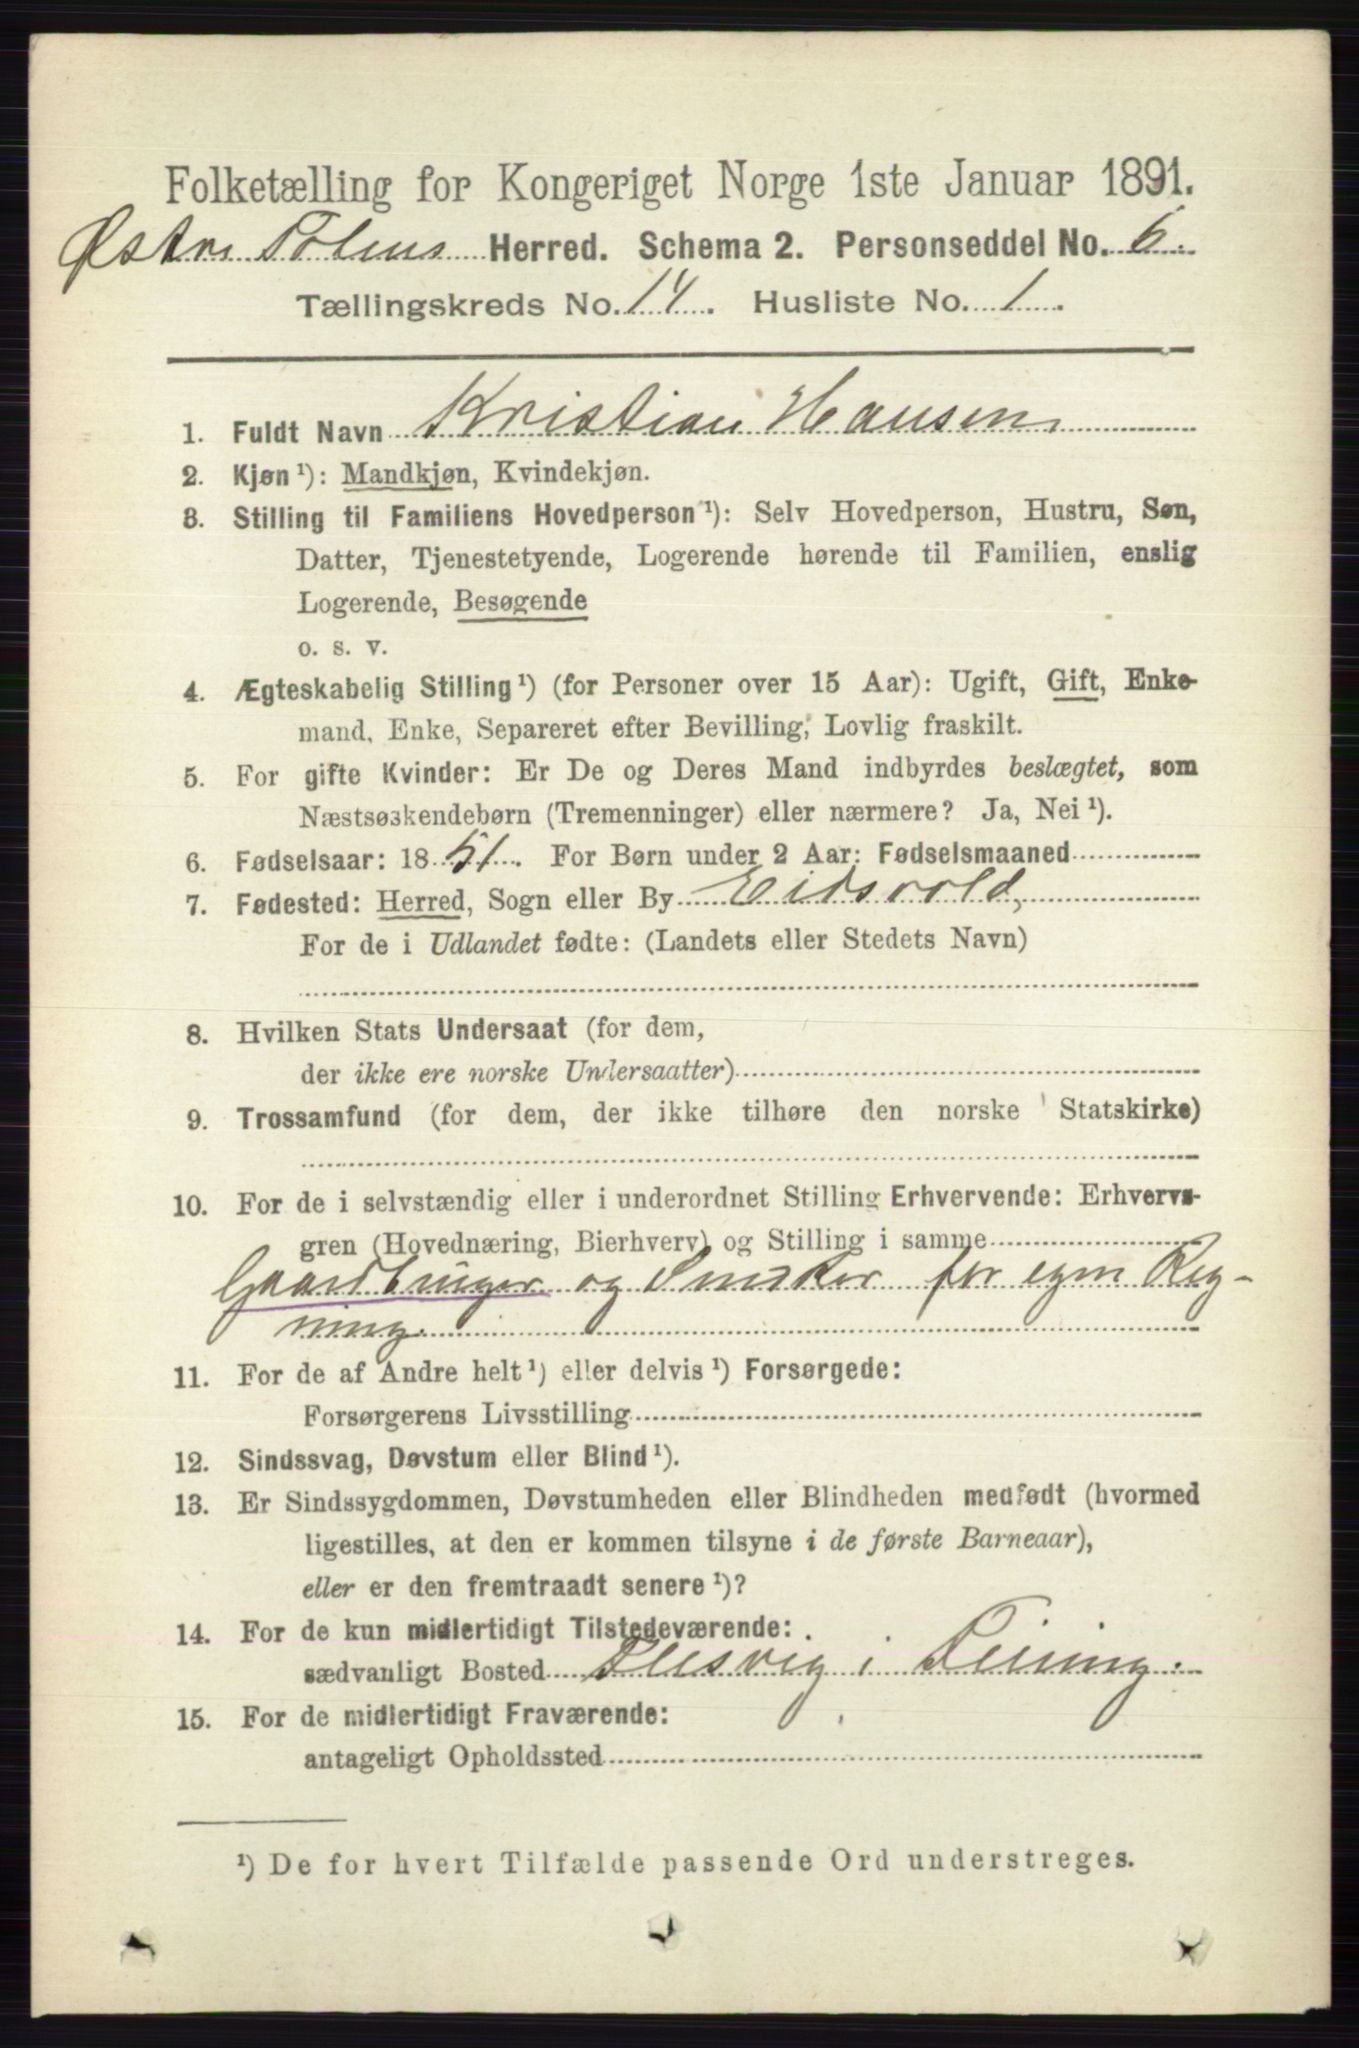 Folketælling for Kongeriget Norge 1ste Januar 1891.
Østre Totens Herred. Schema 2. Personseddel No. 6.
Tællingskreds No. 14. Husliste No. 1.
1. Fuldt Navn Kristian Hansen
2. Kjøn¹): Mandkjøn, Kvindekjøn.
3. Stilling til Familiens Hovedperson¹): Selv Hovedperson, Hustru, Søn,
Datter, Tjenestetyende, Logerende hørende til Familien, enslig
Logerende, Besøgende
o. s. v.
4. Ægteskabelig Stilling¹) (for Personer over 15 Aar): Ugift, Gift, Enke-
mand, Enke, Separeret efter Bevilling, Lovlig fraskilt.
5. For gifte Kvinder: Er De og Deres Mand indbyrdes beslægtet, som
Næstsøskendebørn (Tremenninger) eller nærmere? Ja, Nei¹).
6. Fødselsaar: 1851. For Børn under 2 Aar: Fødselsmaaned
7. Fødested: Herred, Sogn eller By Eidsvold,
For de i Udlandet fødte: (Landets eller Stedets Navn)
8. Hvilken Stats Undersaat (for dem,
der ikke ere norske Undersaatter)
9. Trossamfund (for dem, der ikke tilhøre den norske Statskirke)
10. For de i selvstændig eller i underordnet Stilling Erhvervende: Erhvervs-
gren (Hovednæring, Bierhverv) og Stilling i samme
Gaardbruger og Snedker for egen Reg-
ning.
11. For de af Andre helt¹) eller delvis¹) Forsørgede:
Forsørgerens Livsstilling
12. Sindssvag, Døvstum eller Blind¹).
13. Er Sindssygdommen, Døvstumheden eller Blindheden medfødt (hvormed
ligestilles, at den er kommen tilsyne i de første Barneaar),
eller er den fremtraadt senere¹)?
14. For de kun midlertidigt Tilstedeværende:
sædvanligt Bosted i Feiring.
15. For de midlertidigt Fraværende:
antageligt Opholdssted
¹) De for hvert Tilfælde passende Ord understreges.